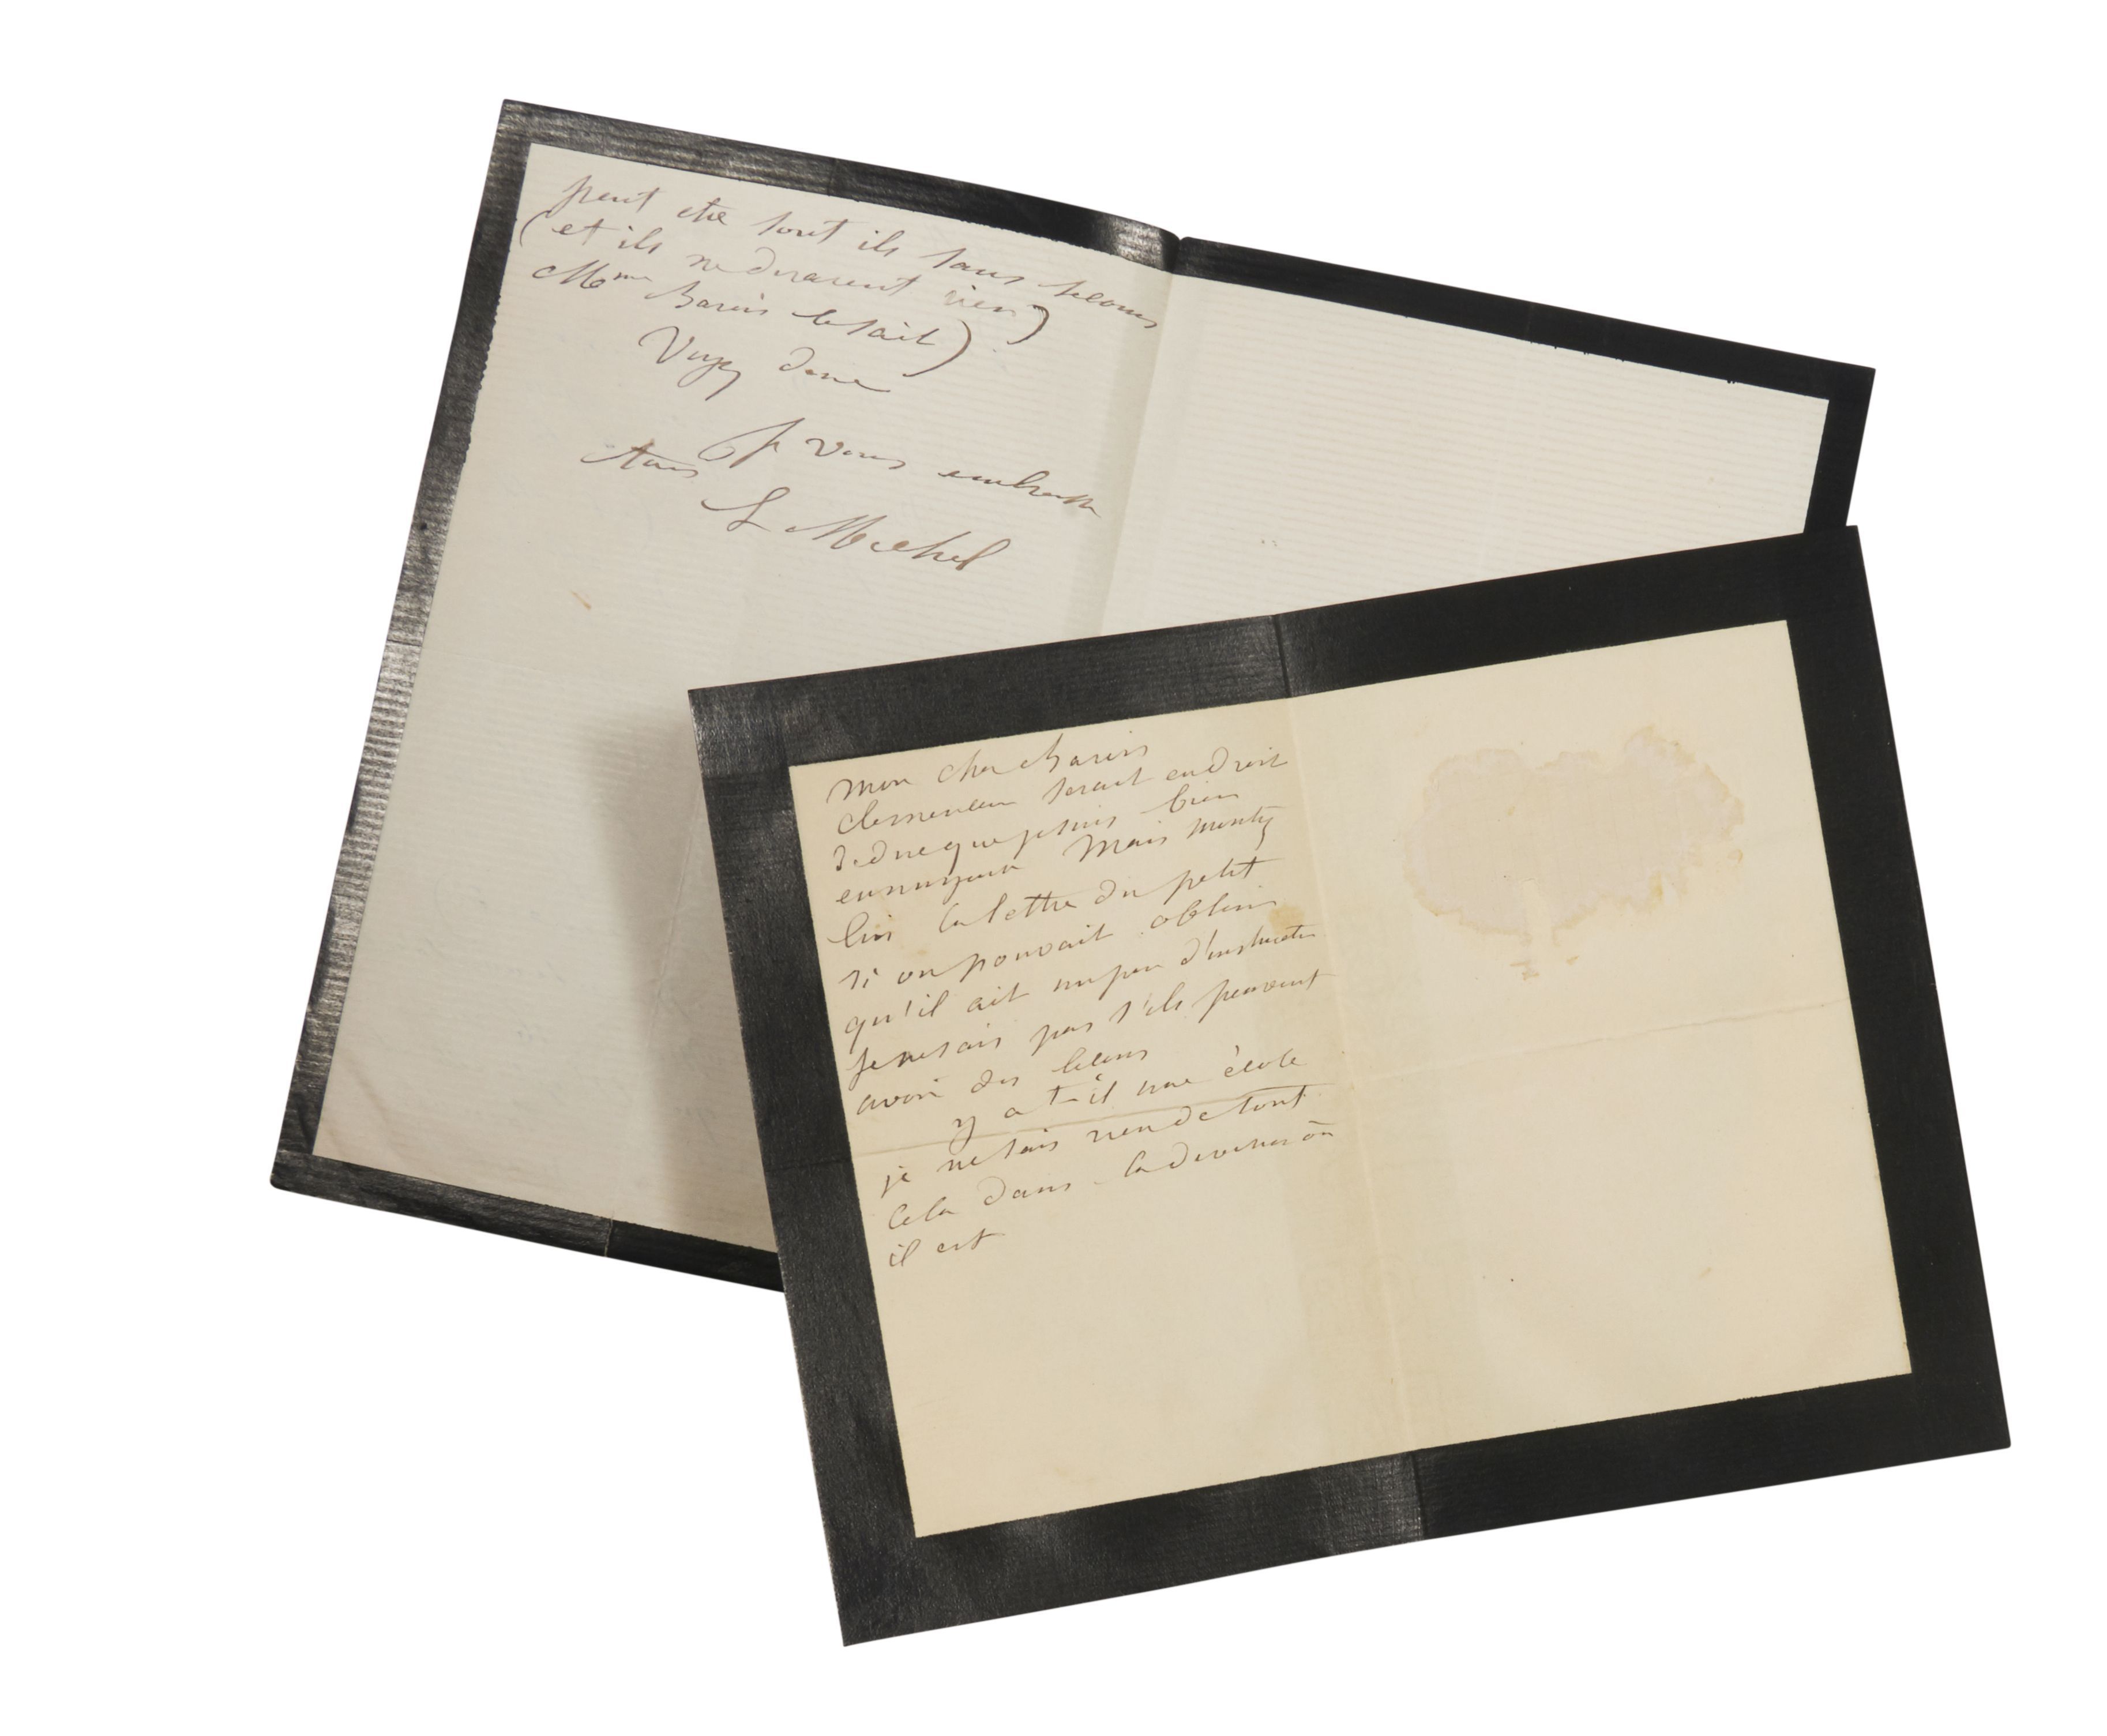 peut etre sont ils sans secours
(et ils ne diraient rien)
Mme Barois le sait).
Voyez donc
Je vous embrasse
tous
L Michel
mon cher Barois
Clemenceau serait en droit
de dire que je suis bien
ennuyeuse Mais
la lettre du petit
si on pouvait obtenir
qu'il ait un peu d'instruction
je ne sais pas s'ils peuvent
avoir des lecons
y a t-il une école
je ne sais rien de tout
cela dans la où
il est